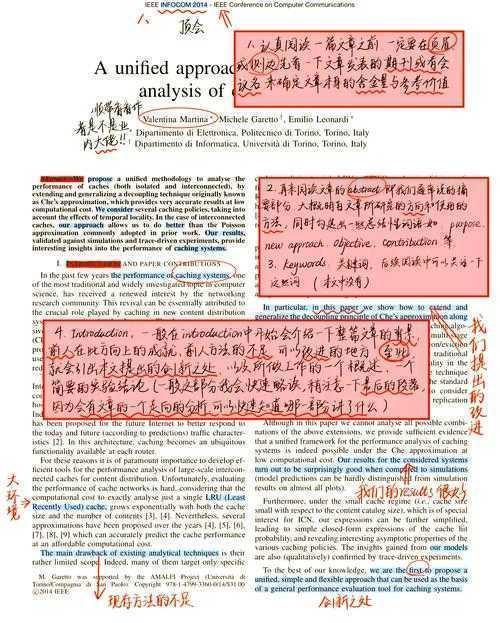 IEEE INFOCOM 2014 - IEEE Conference on Computer Communications
一、
顶会
1. 认真阅读一篇文章之前,一定要在页眉
或侧边先看一下文章发表的期刊或者会
议名来确定文章本身的含金量与参考价值
A unified approac
analysis of
顺带看看作
者是不是业
内大佬!!
Valentina Martina*, Michele Garetto†, Emilio Leonardi*
* Dipartimento di Elettronica, Politecnico di Torino, Torino, Italy
† Dipartimento di Informatica, Università di Torino, Torino, Italy
Abstract—We propose a unified methodology to analyse the
performance of caches (both isolated and interconnected), by
extending and generalizing a decoupling technique originally known
as Che's approximation, which provides very accurate results at low
computational cost. We consider several caching policies, taking into
account the effects of temporal locality. In the case of interconnected
caches, our approach allows us to do better than the Poisson
approximation commonly adopted in prior work. Our results,
validated against simulations and trace-driven experiments, provide
interesting insights into the performance of caching systems.
I. INTRODUCTION AND PAPER CONTRIBUTIONS
In the past few years the performance of caching systems, one
of the most traditional and widely investigated topic in computer
science, has received a renewed interest by the networking
research community. This revival can be essentially attributed to
the crucial role played by caching in new content distribution
2. 再来阅读文章的abstract 即我们通常说的摘
要部分,大概明白文章所研究的方向和使用的
方法,同时勾画出一些总结性词语如 purpose.
new approach. objective. contribution 等
3. Keywords. 关键词,后续阅读中可以关注一下
这些词 (本文没有)
In particular, in this paper we show how to extend and
generalize the decoupling principle of Che's approximation along
我们提出的改进
4. Introduction, 一般在introduction中开始会介绍一下整篇文章的背景
前人在此方向上的成就,前人方法的不足 可以改进的地方
就会引出本文提出的创新之处,以及所做工作的一个概述,一个
简要的实验结论
因为会有文章的一个走向的分析,可以快速知道哪一部分讲了什么)
has been proposed for the future Internet to better respond to
the today and future (according to predictions) traffic character-
istics [2]. In this architecture, caching becomes an ubiquitous
functionality available at each router.
For these reasons it is of paramount importance to develop ef-
ficient tools for the performance analysis of large-scale intercon-
nected caches for content distribution. Unfortunately, evaluating
the performance of cache networks is hard, considering that the
computational cost to exactly analyse just a single LRU (Least
Recently Used) cache, grows exponentially with both the cache
size and the number of contents [3], [4]. Nevertheless, several
approximations have been proposed over the years [4], [5], [6],
[7], [8], [9] which can accurately predict the cache performance
at an affordable computational cost.
The main drawback of existing analytical techniques is their
rather limited scope. Indeed, many of them target only specific
大环境
M. Garetto was supported by the AMALFI Project (Università di
Torino/Compagnia di San Paolo). Copyright 978-1-4799-3360-0/14/$31.00
©2014 IEEE
现存方法的不足
Although in this paper we cannot analyse all possible combi-
nations of the above extensions, we provide sufficient evidence
that a unified framework for the performance analysis of caching
systems is indeed possible under the Che approximation at
low computational cost. Our results for the considered systems
turn out to be surprisingly good when compared to simulations
(model predictions can be hardly distinguished from simulation
results on almost all plots).
我们的results 很好
Furthermore, under the small cache regime (i.e., cache size
small with respect to the content catalog size), which is of special
interest for ICN, our expressions can be further simplified,
leading to simple closed-form expressions of the cache hit
probability, and revealing interesting asymptotic properties of the
various caching policies. The insights gained from our models
are also (qualitatively) confirmed by trace-driven experiments.
To the best of our knowledge, we are the first to propose a
unified, simple and flexible approach that can be used as the basis
of a general performance evaluation tool for caching systems.
创新之处